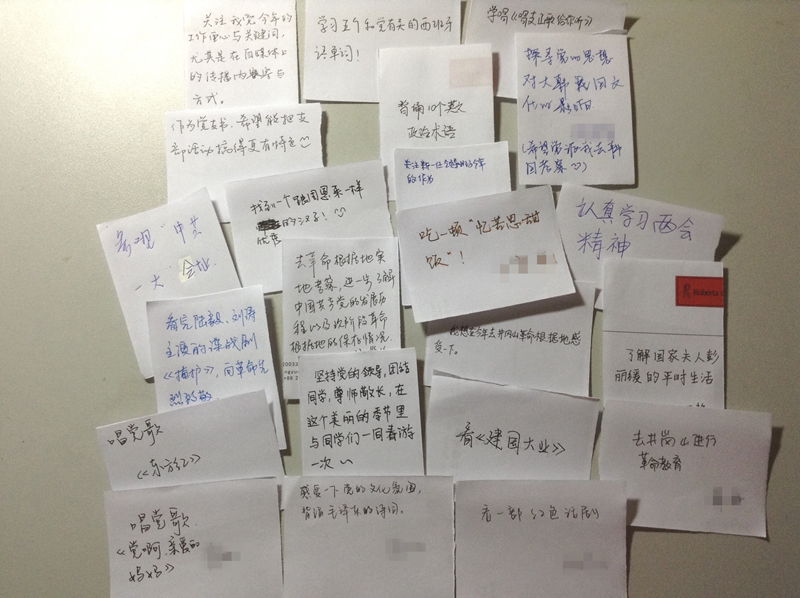 关注我党今年的
工作重心与关键词,
尤其是在自媒体上
的传播内容与
方式。
学习五个和党有关的西班牙
语单词!
学唱《唱支山歌给你听》
背诵10个英文
政治术语
探寻党的思想
对大韩民国文
化的影响
(希望党派我去韩
国考察)
作为党支书,希望能把支
部活动搞得更有特色
的作为
找到一个跟周恩来一样
优秀的汉子!
吃一顿"忆苦思甜
饭"!
认真学习两会
精神
参观"中共
一大"会址
去革命根据地实
地考察,进一步了解
中国共产党的发展历
程以及现阶段革命
根据地的保存情况
看完陆毅、刘涛
主演的谍战剧
《掩护》,向革命先
烈致敬
我想在今年去井冈山革命根据地感
受一下。
Roberta
了解国家夫人彭
丽媛的平时生活
坚持党的领导,团结
同学,尊师敬长,在
这个美丽的季节里
与同学们一同春游
一次~
唱党歌
《东方红》
看《建国大业》
去井岗山进行
革命教育
唱党歌
《党啊,亲爱的
妈妈》
感受一下党的文化氛围,
背诵毛泽东的诗词。
看一部红色话剧